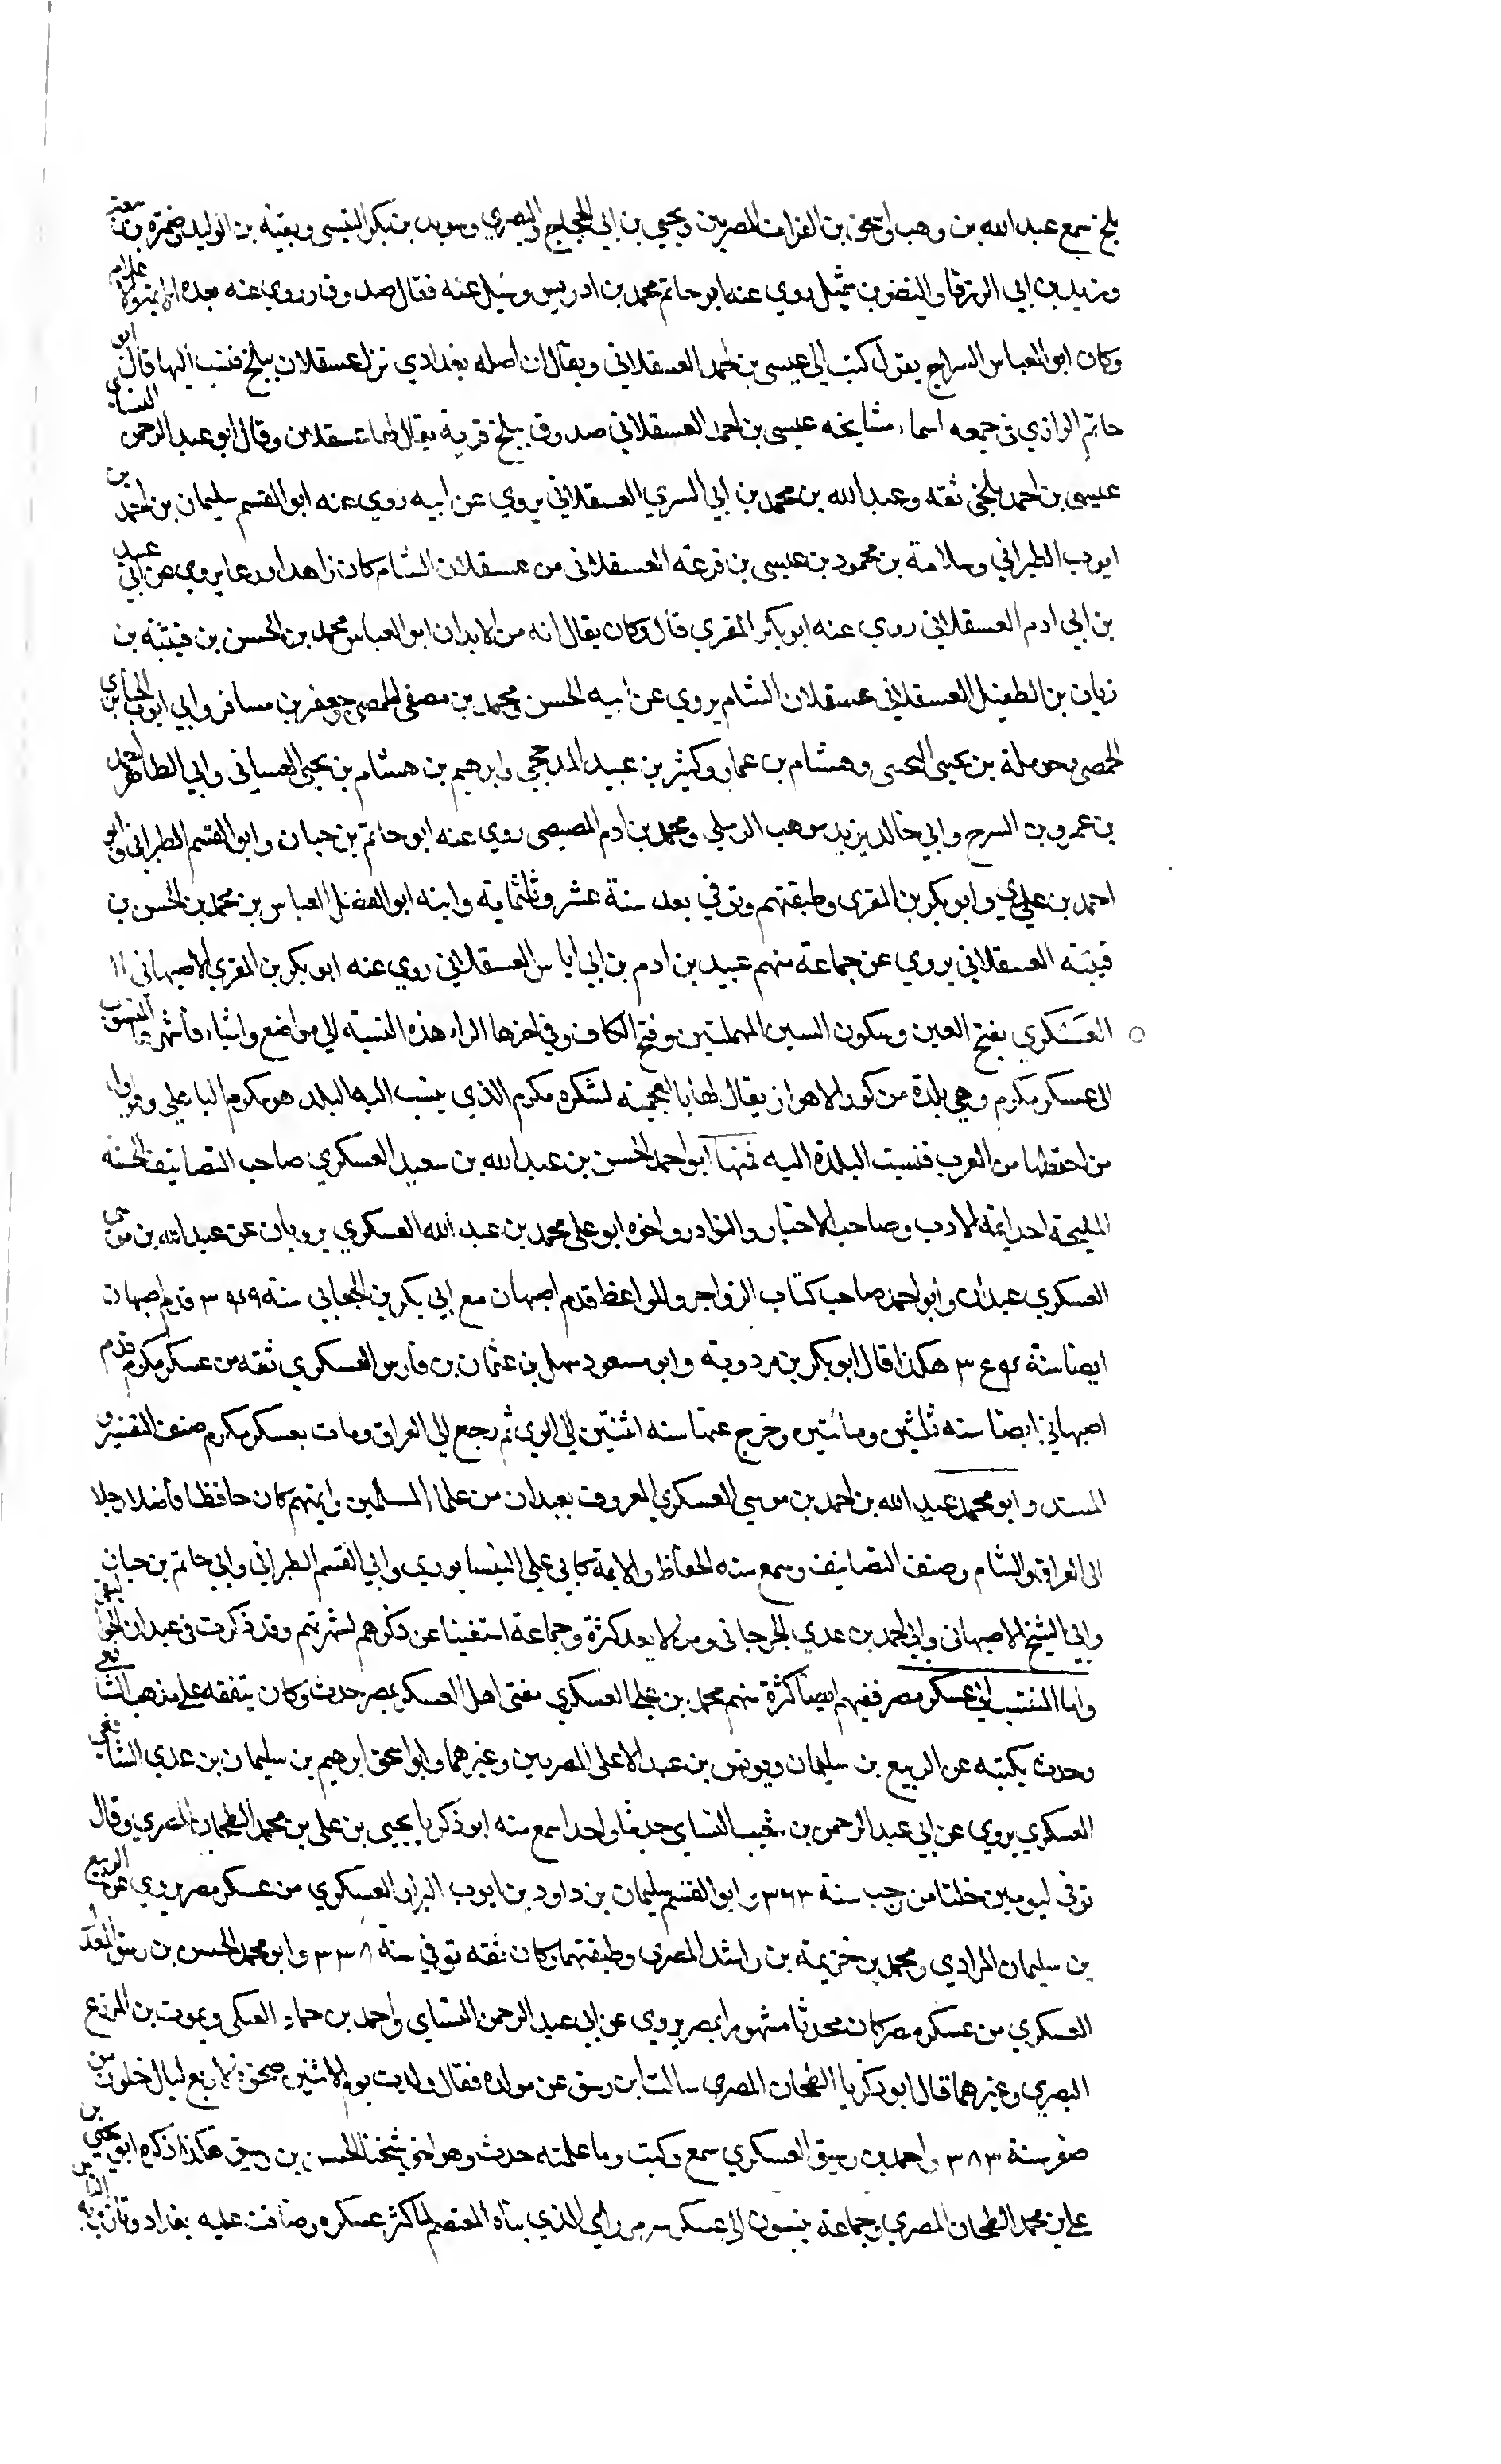 بلخ سمع عبد الله بن وهب واسحق بن الفرات المصريين ويحيى بن ابي الحجاج البصري وسويد بن بكر التنيسي وبقية بن الوليد وضمرة بن ربيعة
وزيد بن ابي الزرقا والنضر بن شميل روي عنه ابو حاتم محمد بن ادريس وسئل عنه فقال صدوق روي عنه بعده الايمة والاعلام
وكان ابو العباس السراج يقول كتب الى عيسى بن احمد العسقلاني ويقال ان اصله بغدادي نزل عسقلان ببلخ فنسب اليها قال ابو
حاتم الرازي في جمعه اسماء مشايخه عيسى بن احمد العسقلاني صدوق ببلخ قرية يقال لها عسقلان وقال ابو عبد الرحمن النساي
عيسى بن احمد بلخي ثقه وعبد الله بن محمد بن ابي السري العسقلاني يروي عن ابيه روي عنه ابو القسم سليمان بن احمد بن
ايوب الطبراني وسلامة بن محمود بن عيسى بن قزعه العسقلاني من عسقلان الشام كان زاهدا ورعا يروي عن ابي عبيد
بن ابي ادم العسقلاني روي عنه ابو بكر المقري قال وكان يقال انه من الابدال ابو العباس محمد بن الحسن بن قتيبة بن
زيان بن الطفيل العسقلاني عسقلان الشام يروي عن ابيه الحسن ومحمد بن مصفى الحمصي وجعفر بن مسافر وابي ايوب
الحمصي وحرملة بن يحيى التجيبي وهشام بن عمار وكثير بن عبيد المذحجي وابرهيم بن هشام بن يحيى الغساني وابي الطاهر احمد
بن عمرو بن السرح وابي خالد يزيد بن موهب الرملي ومحمد بن ادم المصيصي روي عنه ابو حاتم بن حبان وابو القسم الطبراني وابو
احمد بن عدي وابو بكر بن المقري وطبقتهم وتوفي بعد سنة عشر وثلثماية وابنه ابو الفضل العباس بن محمد بن الحسن بن
قتيبة العسقلاني يروي عن جماعة منهم عبيد بن ادم بن ابي اياس العسقلاني روي عنه ابو بكر بن المقري الاصبهاني ١١
العسكري بفتح العين وسكون السين المهملتين وفتح الكاف وفي اخرها الراء هذه النسبة الى مواضع واشياء فأشهرها المنسوب
الى عسكر مكرم وهي بلدة من كور الاهواز يقال لها بالعجمية لشكر ومكرم الذي ينسب اليه البلد هو مكرم الباهلي وهو اول
من اختطها من العرب فنسبت البلدة اليه فمنها ابو احمد الحسن بن عبد الله بن سعيد العسكري صاحب التصانيف الحسنه
المليحة احد ايمة الادب وصاحب الاخبار والنوادر واخوه ابو على محمد بن عبد الله العسكري يرويان عن عبد الله بن موسى
العسكري عبدان وابو احمد صاحب كتاب الزواجر والمواعظ قدم اصبهان مع ابي بكر بن الجعابي سنة ٣٤٩ قدم اصبهان
ايضا سنة ٣٥٤ هكذا قال ابو بكر بن مردوية وابو مسعود سهل بن عثمان بن فارس العسكري ثقه من عسكر مكرم قدم
اصبهان ايضا سنه ثلثين ومائتين وخرج عنها سنه اثنتين الى الري ثم رجع الى العراق ومات بعسكر مكرم صنف التفسير و
المسند وابو محمد عبد الله بن احمد بن موسى العسكري المعروف بعبدان من علما المسلمين وايمتهم كان حافظا فاضلا رحل
الى العراق والشام وصنف التصانيف وسمع منه الحفاظ والايمة كابي علي النيسابوري وابي القسم الطبراني وابي حاتم بن حبان
وابي الشيخ الاصبهاني وابي احمد بن عدي الجرجاني ومن لا يعد كثرة وجماعة استغنينا عن ذكرهم لشهرتهم وقد ذكرت في عبدان الجواليقي
واما المنتسب الى عسكر مصر ففيهم ايضا كثرة منهم محمد بن علي العسكري مفتى اهل العسكر بمصر حدث وكان يتفقه على مذهب الشافعي
وحدث بكتبه عن الربيع بن سليمان ويونس بن عبد الاعلى المصريين وغيرهما وابو اسحق ابرهيم بن سليمان بن عدي الشافعي
العسكري يروي عن ابي عبد الرحمن بن شعيب النساي حديثا واحدا سمع منه ابو زكريا يحيى بن على بن محمد الطحان المصري وقال
توفي ليومين خلتا من رجب سنة ٣٦٣ وابو القسم سليمان بن داود بن ايوب البزاز العسكري من عسكر مصر يروي عن الربيع
بن سليمان المرادي ومحمد بن خزيمة بن راشد المصري وطبقتهما وكان ثقه توفي سنة ٣٣٨ وابو محمد الحسن بن رشيق المعدل
العسكري من عسكر مصر كان محدثا مشهورا بمصر يروي عن ابي عبد الرحمن النساي واحمد بن حماد العكي ويموت بن المزرع
البصري وغيرهما قال ابو زكريا الطحان المصري سالت ابن رشيق عن مولده فقال ولدت يوم الاثنين ضحوة لاربع ليال خلون من
صفر سنة ٣٨٣ واحمد بن رشيق العسكري سمع وكتب وما علمته حدث وهو اخو شيخنا الحسن بن رشيق هكذا ذكره ابو يحيى بن
علي بن محمد الطحان المصري وجماعة ينسبون الى عسكر سر من راي الذي بناه المعتصم لما كثر عسكره وضاقت عليه بغداد وتاذى به الناس